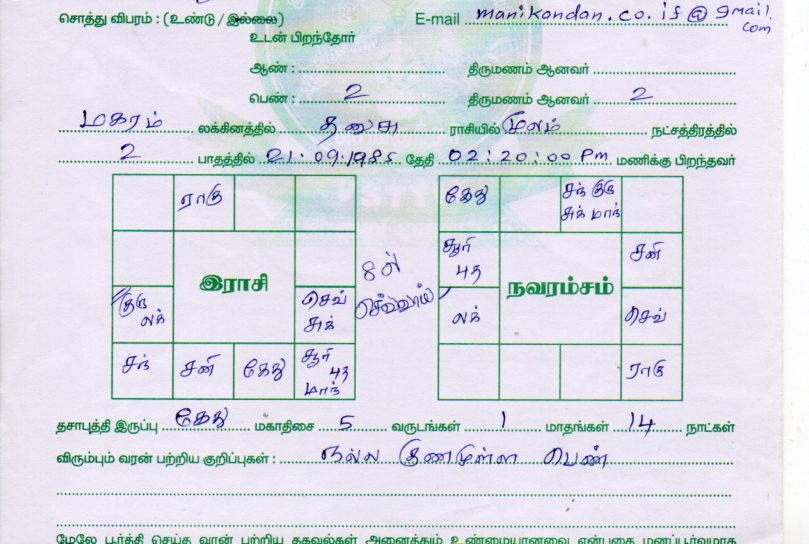 சொத்து விபரம் : (உண்டு / இல்லை) E-mail manikandan.co.if@gmail.com
உடன் பிறந்தோர்
ஆண் : திருமணம் ஆனவர்
பெண் : 2 திருமணம் ஆனவர் 2
மகரம் லக்கினத்தில் தனுசு ராசியில் மூலம் நட்சத்திரத்தில்
2 பாதத்தில் 21.09.1985 தேதி 02:20:00 Pm மணிக்கு பிறந்தவர்
ராகு
இராசி
குரு லக்
செவ் சுக்
சந் சனி கேது சூரி புத மாந்
8ல் செவ்வாய்
கேது சந் குரு சுக் மாந்
சூரி புத சனி
நவரம்சம்
லக் செவ்
ராகு
தசாபுத்தி இருப்பு கேது மகாதிசை 5 வருடங்கள் 1 மாதங்கள் 14 நாட்கள்
விரும்பும் வரன் பற்றிய குறிப்புகள் : நல்ல குணமுள்ள பெண்
மேலே பூர்த்தி செய்த வரன் பற்றிய தகவல்கள் அனைத்தும் உண்மையானவை என்பதை மனப்பூர்வமாக